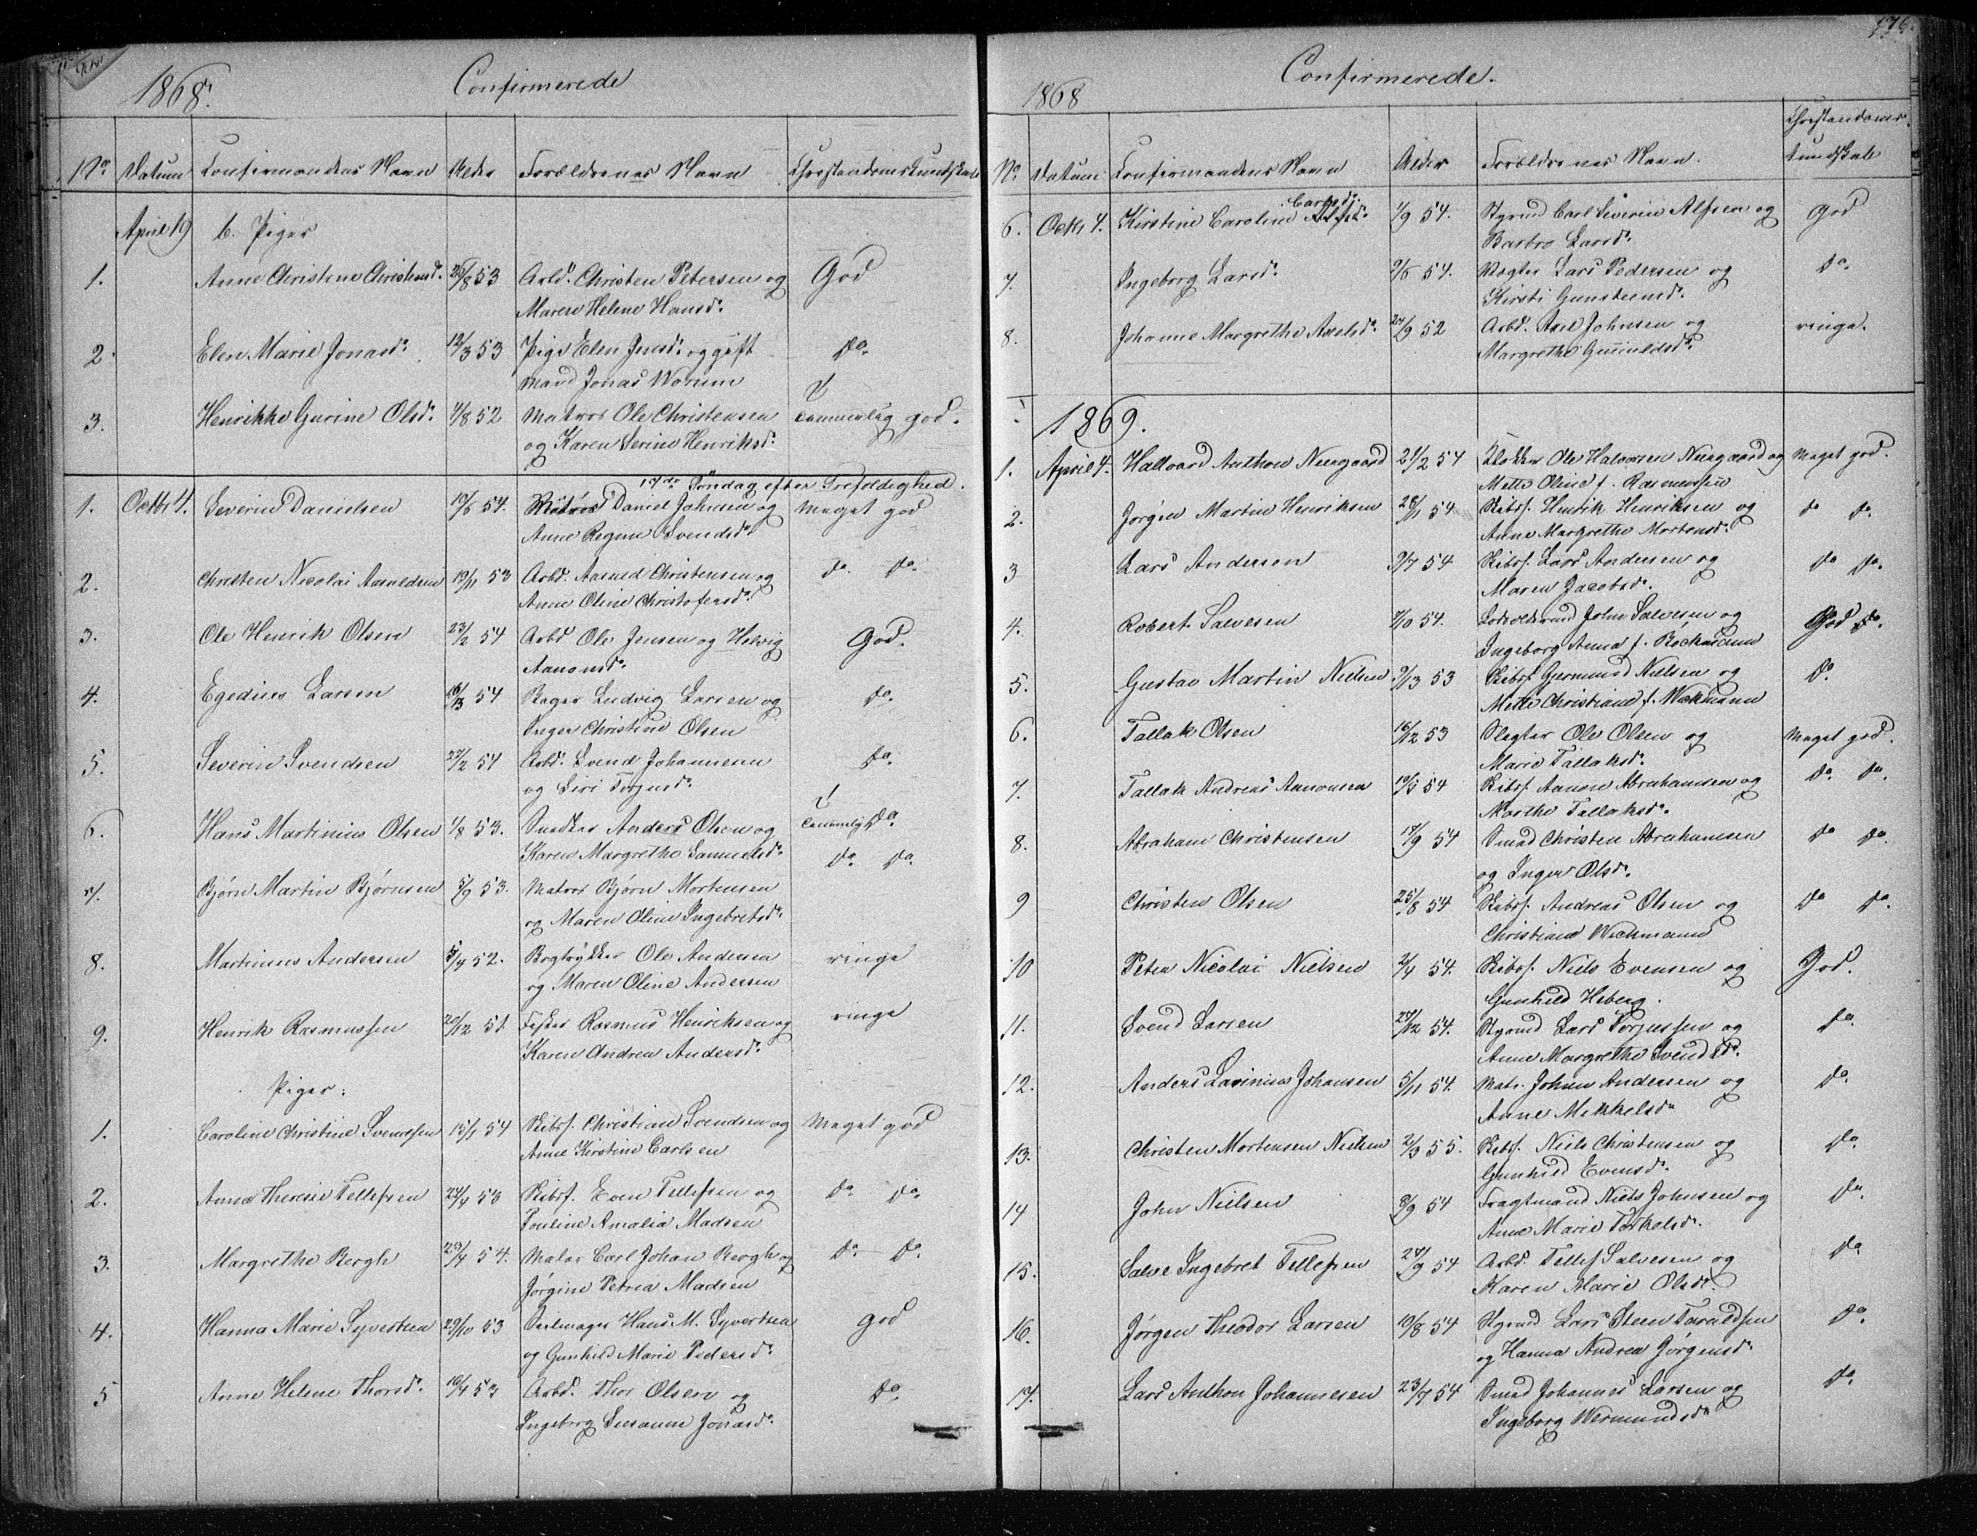 1868. Confirmerede
No Datum Confirmandens Navn Alder Forældrenes Navn Christendomskundskab
April 19 b. Piger
1. Anne Christene Christensd. 53 Arbd. Christen Petersen og God
Maren Helene Hansd.
2. Elen Marie Jonasd. 12/3 53 Pige Elen Jensd. og gift do.
Mand Jonas Worum
3. Henrikke Gurine Olsd. 52 Matros Ole Christensen temmelig god.
og Karen Serine Henriksd.
17de Søndag efter Trefoldighed.
1. Octbr 4. Severin Danielsen 54. Daniel Johnsen og Meget god
Anne Regine Svendsd.
2. Christen Nicolai Aanildsen 19/11 53 Arbd. Christensen og do. do.
Anne Oline Christofersd.
3. Ole Henrik Olsen 23/2 54 Arbd Ole Jensen og Helvig God.
Aanonsd.
4. Egedius Larsen 54 Bager Ludvig Larsen og do.
Inger Christine Olsen
5. Severin Svendsen 54 Arbd. Svend Johannesen do.
og Siri Torjusd.
6. Hans Martinius Olsen 1/8 53. Snedker Anders Olsen og temmelig do.
Karen Margrethe Samuelsd. do. do.
7. Bjørn Martin Bjørnsen 5/9 53. Matros Bjørn Mortensen
og Maren Oline Ingebretsd.
8. Martinus Andersen 52. Bogtrykker Ole Andersen ringe
og Maren Oline Andersen
9. Henrik Rasmussen 51. Fisker Rasmus Henriksen og ringe
Karen Andrea Andersd.
Piger:
1. Caroline Christine Svendsen 15/1 54 Skibsf. Christian Svendsen og Meget god
Anne Kirstine Carlsen
2. Anne Therese Tellefsen 53 Skibsf. Even Tellefsen og do. do.
Pauline Amalia Madsen
3. Margrethe Bergh 54. Maler Carl Johan Bergh og do. do.
Jørgine Petrea Madsen
4. Hanna Marie Syvertsen 29/10 53 Seilmager Hans M. Syvertsen god
og Gunhild Marie Pedersd.
5 Anne Helene Thorsd. 53 Arbd. Thor Olsen og do.
Ingeborg Susanne Jonasd.
176.
1868 Confirmerede.
No. Datum Confirmandens Navn Alder Forældrenes Navn. Christendoms kundskab
Carlsd.
6. Octbr 4. Kirstine Caroline 1/9 54. Styrmd Carl Severin Alfsen og God
Barbro Larsd.
7. Ingeborg Larsd. 54. Vægter Lars Pedersen og do.
Kirsti Gunsteensd.
8. Johanne Margrethe Axelsd. 52 Arbd. Axel Johnsen og ringe.
Margrethe Gunnildsd.
1869.
1. April 4. Hallvard Anthon Neergaard 54 Klokker Ole Halvorsen Neergaard og Meget god.
Mette Oline f. Rasmussen
2. Jørgen Martin Henriksen 28/11 54 Skibsf. Henrik Henriksen og do do.
Anne Margrethe Mortensd.
3 Lars Andersen 54 Skibsf. Lars Andersen og do do.
Maren Jacobsd.
4. Robert Salvesen 54. John Salvesen og God do.
Ingeborg Anna f.
5. Gustav Martin Nielsen 53 Skibsf. Gjermund Nielsen og do.
Mette Christiane f. Wickmann
6. Tallak Olsen 16/12 53 Slagter Ole Olsen og Meget god.
Marie Tallaksd.
7. Tallak Andreas Aanonsen 54 Skibsf. Aanon Abrahamsen og do do.
Marthe Tallaksd.
8. Abraham Christensen 17/9 54 Smed Christen Abrahamsen do do.
og Inger Olsd.
9 Christen Olsen 25/8 54 Skibsf. Andreas Olsen og do do.
Christiane Wickmann
10 Peter Nicolai Nielsen 54. Skibsf. Niels Evensen og God.
Gunhild Heberg.
11. Svend Larsen 54. Styrmd Lars Torjussen og do.
Anne Margrethe Svendsd.
12. Anders Lavinius Johansen 5/11 54. Matr. Johan Andersen og do.
Anne Mikkelsd.
13. Christen Mortensen Nielsen 2/3 55. Skibsf. Niels Christensen og do.
Gunhild Evensd.
14 John Nielsen 8/9 54 Fragtmand Niels Johnsen og do.
Anne Marie Torkelsd.
15. Salve Ingebret Tellefsen 24/9 54 Arbd. Tellef Salvesen og do.
Karen Marie Olsd.
16. Jørgen Theodor Larsen 10/8 54 Styrmd Lars Steen Taraldsen do.
og Hanna Andrea Jørgensd.
17. Lars Anthon Johannesen 23/7 54 Smed Johannes Larsen og do.
Ingeborg Wermundsd.